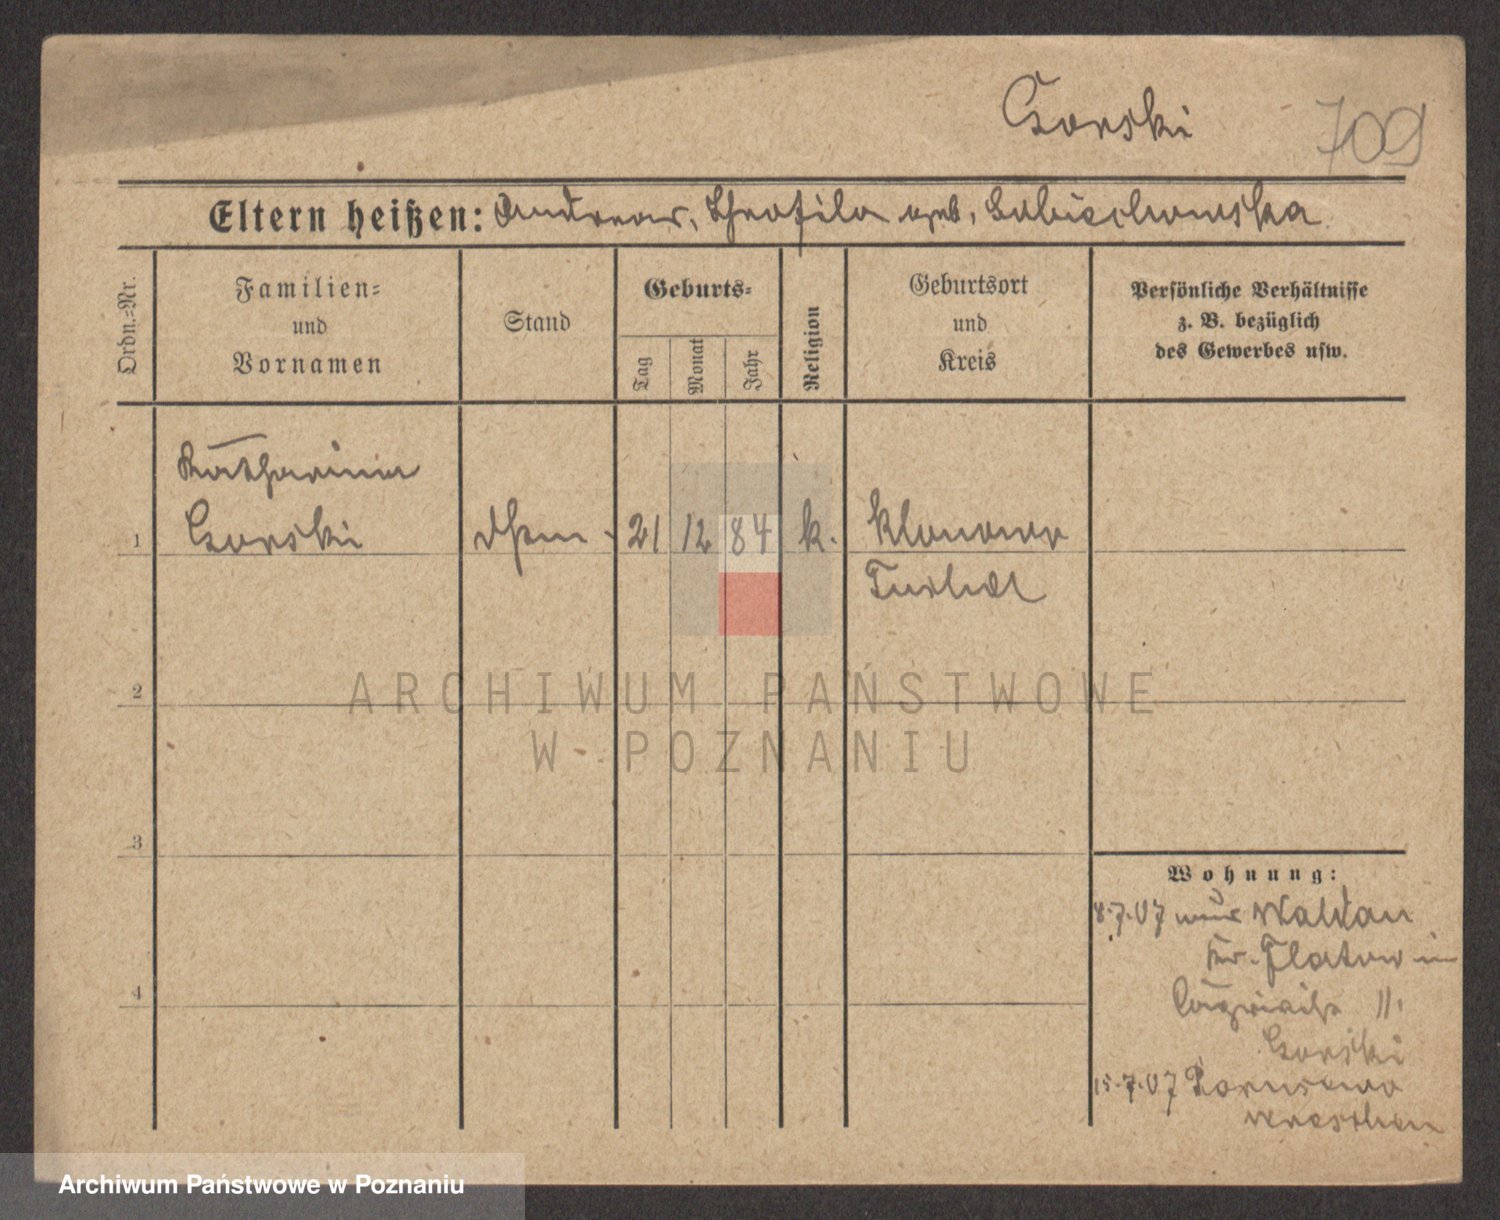 Gorski 709
Eltern heißen: Andreas, Theofila geb.
Ordn.=Nr.
Familien=
und
Vornamen
Stand
Geburts=
Tag
Monat
Jahr
Religion
Geburtsort
und
Kreis
Persönliche Verhältnisse
z. B. bezüglich
des Gewerbes usw.
Katharina
1 Gorski 21 12 84 k. Klonowo
Tuchel
ARCHIWUM PAŃSTWOWE
2
W POZNANIU
3
Wohnung:
8.7.07 Waldau
4
Kr. Flatow in
11.
Gorski
15.7.07
Wreschen
Archiwum Państwowe w Poznaniu